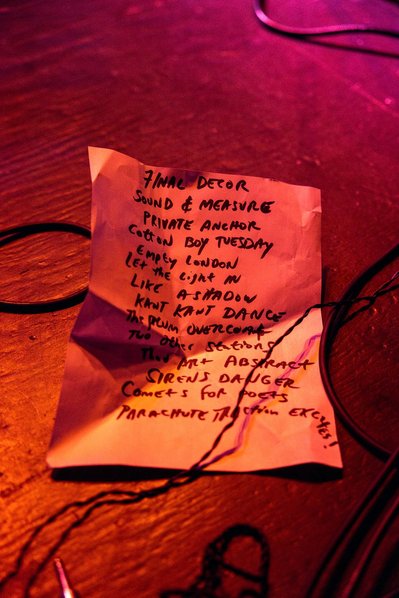 FINAL DECOR
SOUND & MEASURE
PRIVATE ANCHOR
Cotton BOY TUESDAY
EMPTY LONDON
Let the Light IN
LIKE A SHADOW
KANT KANT DANCE
The PLUM OVERCOAT
Two other stations
ART ABSTRACT
SIRENS DANGER
COMETS FOR POETS
PARACHUTE